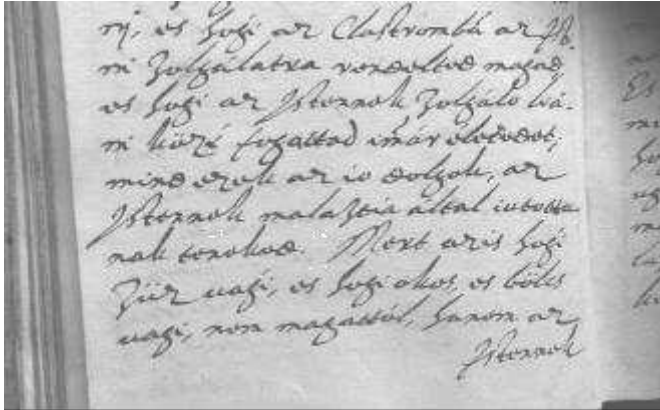 nÿ, es hogi az Clastromba az Js
ni zolgálatra rendeltod magad
es hogi az Jstennek zolgalo leá-
ni közé fogattad imár eletedet,
mind ezek az io dolgok, az
Jstennek malaztia által iutotta
nak teneked. Mert azis hogi
züz uagi, es hogi okos, es bölcs
uagi, nem magattól, hanem az
Jstennek
Es